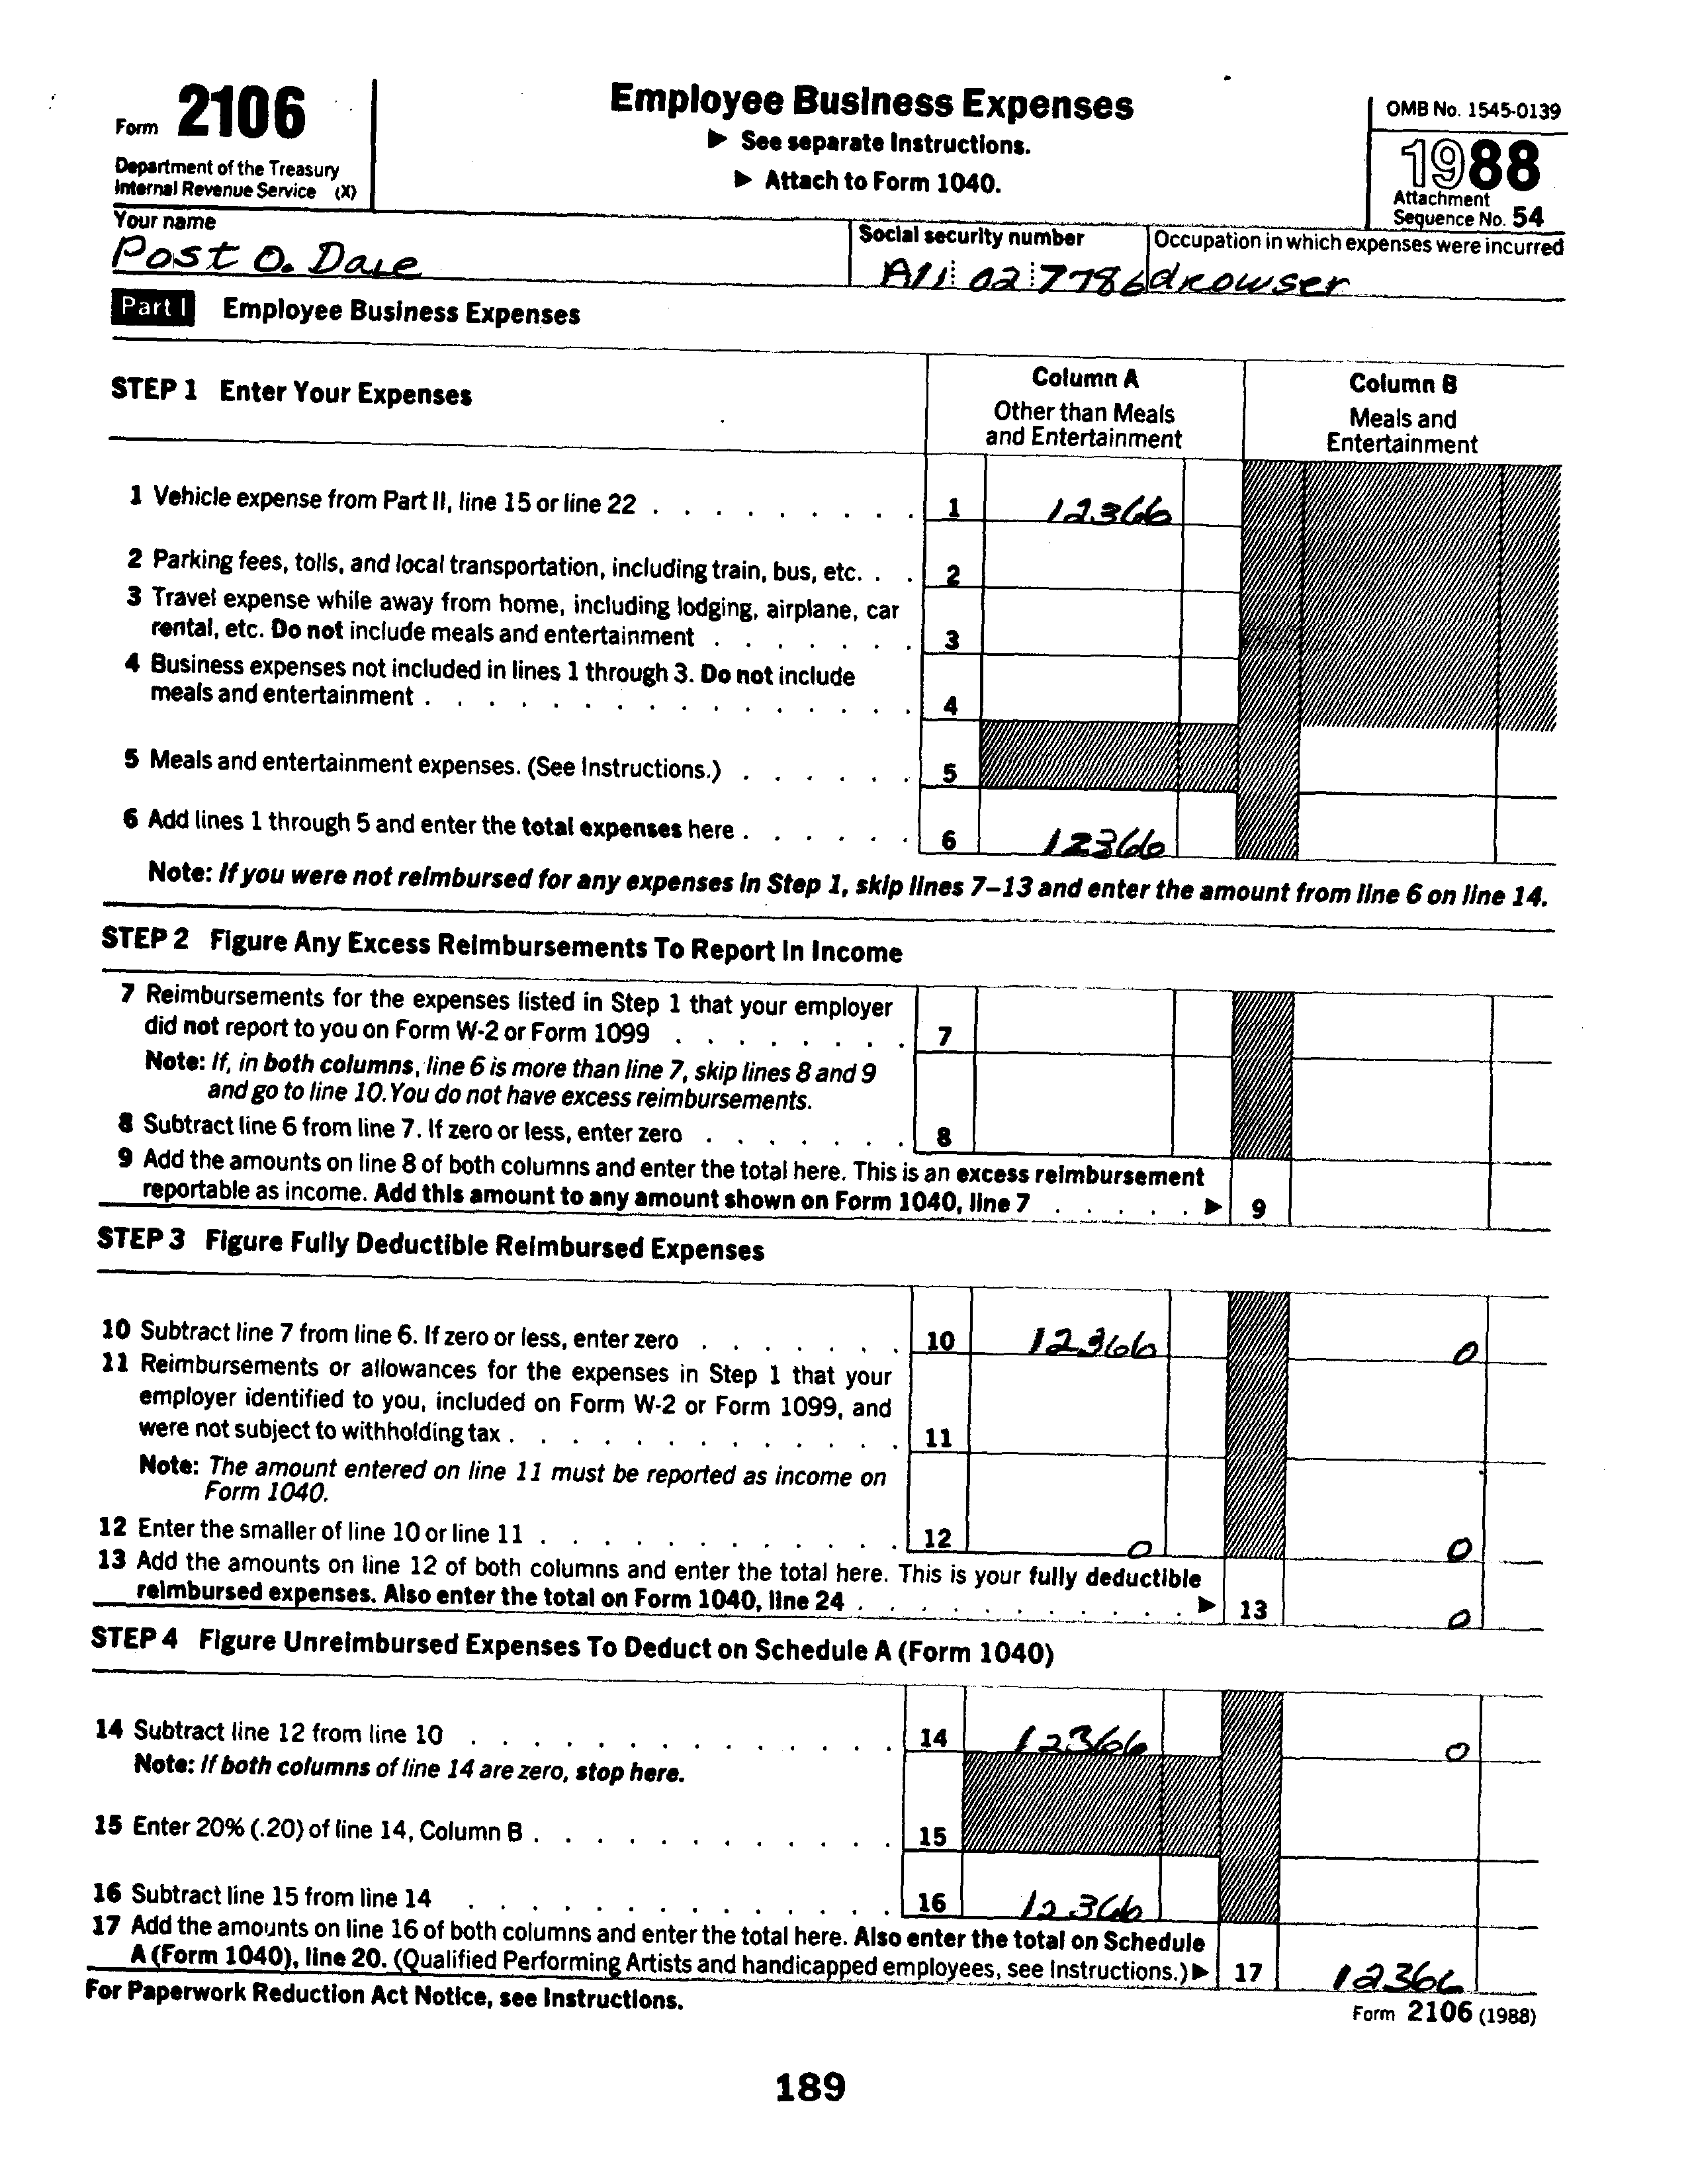 Form 2106
Department of the Treasury
Internal Revenue Service (X)
Employee Business Expenses
▶ See separate Instructions.
▶ Attach to Form 1040.
OMB No. 1545-0139
1988
Attachment
Sequence No. 54
Your name
Post O. Dale
Social security number
A11 02 7786
Occupation in which expenses were incurred
drowser
Part I Employee Business Expenses
STEP 1 Enter Your Expenses
Column A
Other than Meals
and Entertainment
Column B
Meals and
Entertainment
1 Vehicle expense from Part II, line 15 or line 22 . . . . . . . . . 1 12366
2 Parking fees, tolls, and local transportation, including train, bus, etc. . . 2
3 Travel expense while away from home, including lodging, airplane, car
rental, etc. Do not include meals and entertainment . . . . . . . 3
4 Business expenses not included in lines 1 through 3. Do not include
meals and entertainment . . . . . . . . . . . . . . . . 4
5 Meals and entertainment expenses. (See Instructions.) . . . . . . 5
6 Add lines 1 through 5 and enter the total expenses here . . . . . . 6 12366
Note: If you were not reimbursed for any expenses in Step 1, skip lines 7–13 and enter the amount from line 6 on line 14.
STEP 2 Figure Any Excess Reimbursements To Report In Income
7 Reimbursements for the expenses listed in Step 1 that your employer
did not report to you on Form W-2 or Form 1099 . . . . . . . . 7
Note: If, in both columns, line 6 is more than line 7, skip lines 8 and 9
and go to line 10. You do not have excess reimbursements.
8 Subtract line 6 from line 7. If zero or less, enter zero . . . . . . . 8
9 Add the amounts on line 8 of both columns and enter the total here. This is an excess reimbursement
reportable as income. Add this amount to any amount shown on Form 1040, line 7 . . . . . ▶ 9
STEP 3 Figure Fully Deductible Reimbursed Expenses
10 Subtract line 7 from line 6. If zero or less, enter zero . . . . . . . 10 12366 0
11 Reimbursements or allowances for the expenses in Step 1 that your
employer identified to you, included on Form W-2 or Form 1099, and
were not subject to withholding tax . . . . . . . . . . . . . 11
Note: The amount entered on line 11 must be reported as income on
Form 1040.
12 Enter the smaller of line 10 or line 11 . . . . . . . . . . . . 12 0 0
13 Add the amounts on line 12 of both columns and enter the total here. This is your fully deductible
reimbursed expenses. Also enter the total on Form 1040, line 24 . . . . . . . . . . . ▶ 13 0
STEP 4 Figure Unreimbursed Expenses To Deduct on Schedule A (Form 1040)
14 Subtract line 12 from line 10 . . . . . . . . . . . . . . 14 12366 0
Note: If both columns of line 14 are zero, stop here.
15 Enter 20% (.20) of line 14, Column B . . . . . . . . . . . . 15
16 Subtract line 15 from line 14 . . . . . . . . . . . . . . 16 12366
17 Add the amounts on line 16 of both columns and enter the total here. Also enter the total on Schedule
A (Form 1040), line 20. (Qualified Performing Artists and handicapped employees, see Instructions.) ▶ 17 12366
For Paperwork Reduction Act Notice, see Instructions.
Form 2106 (1988)
189